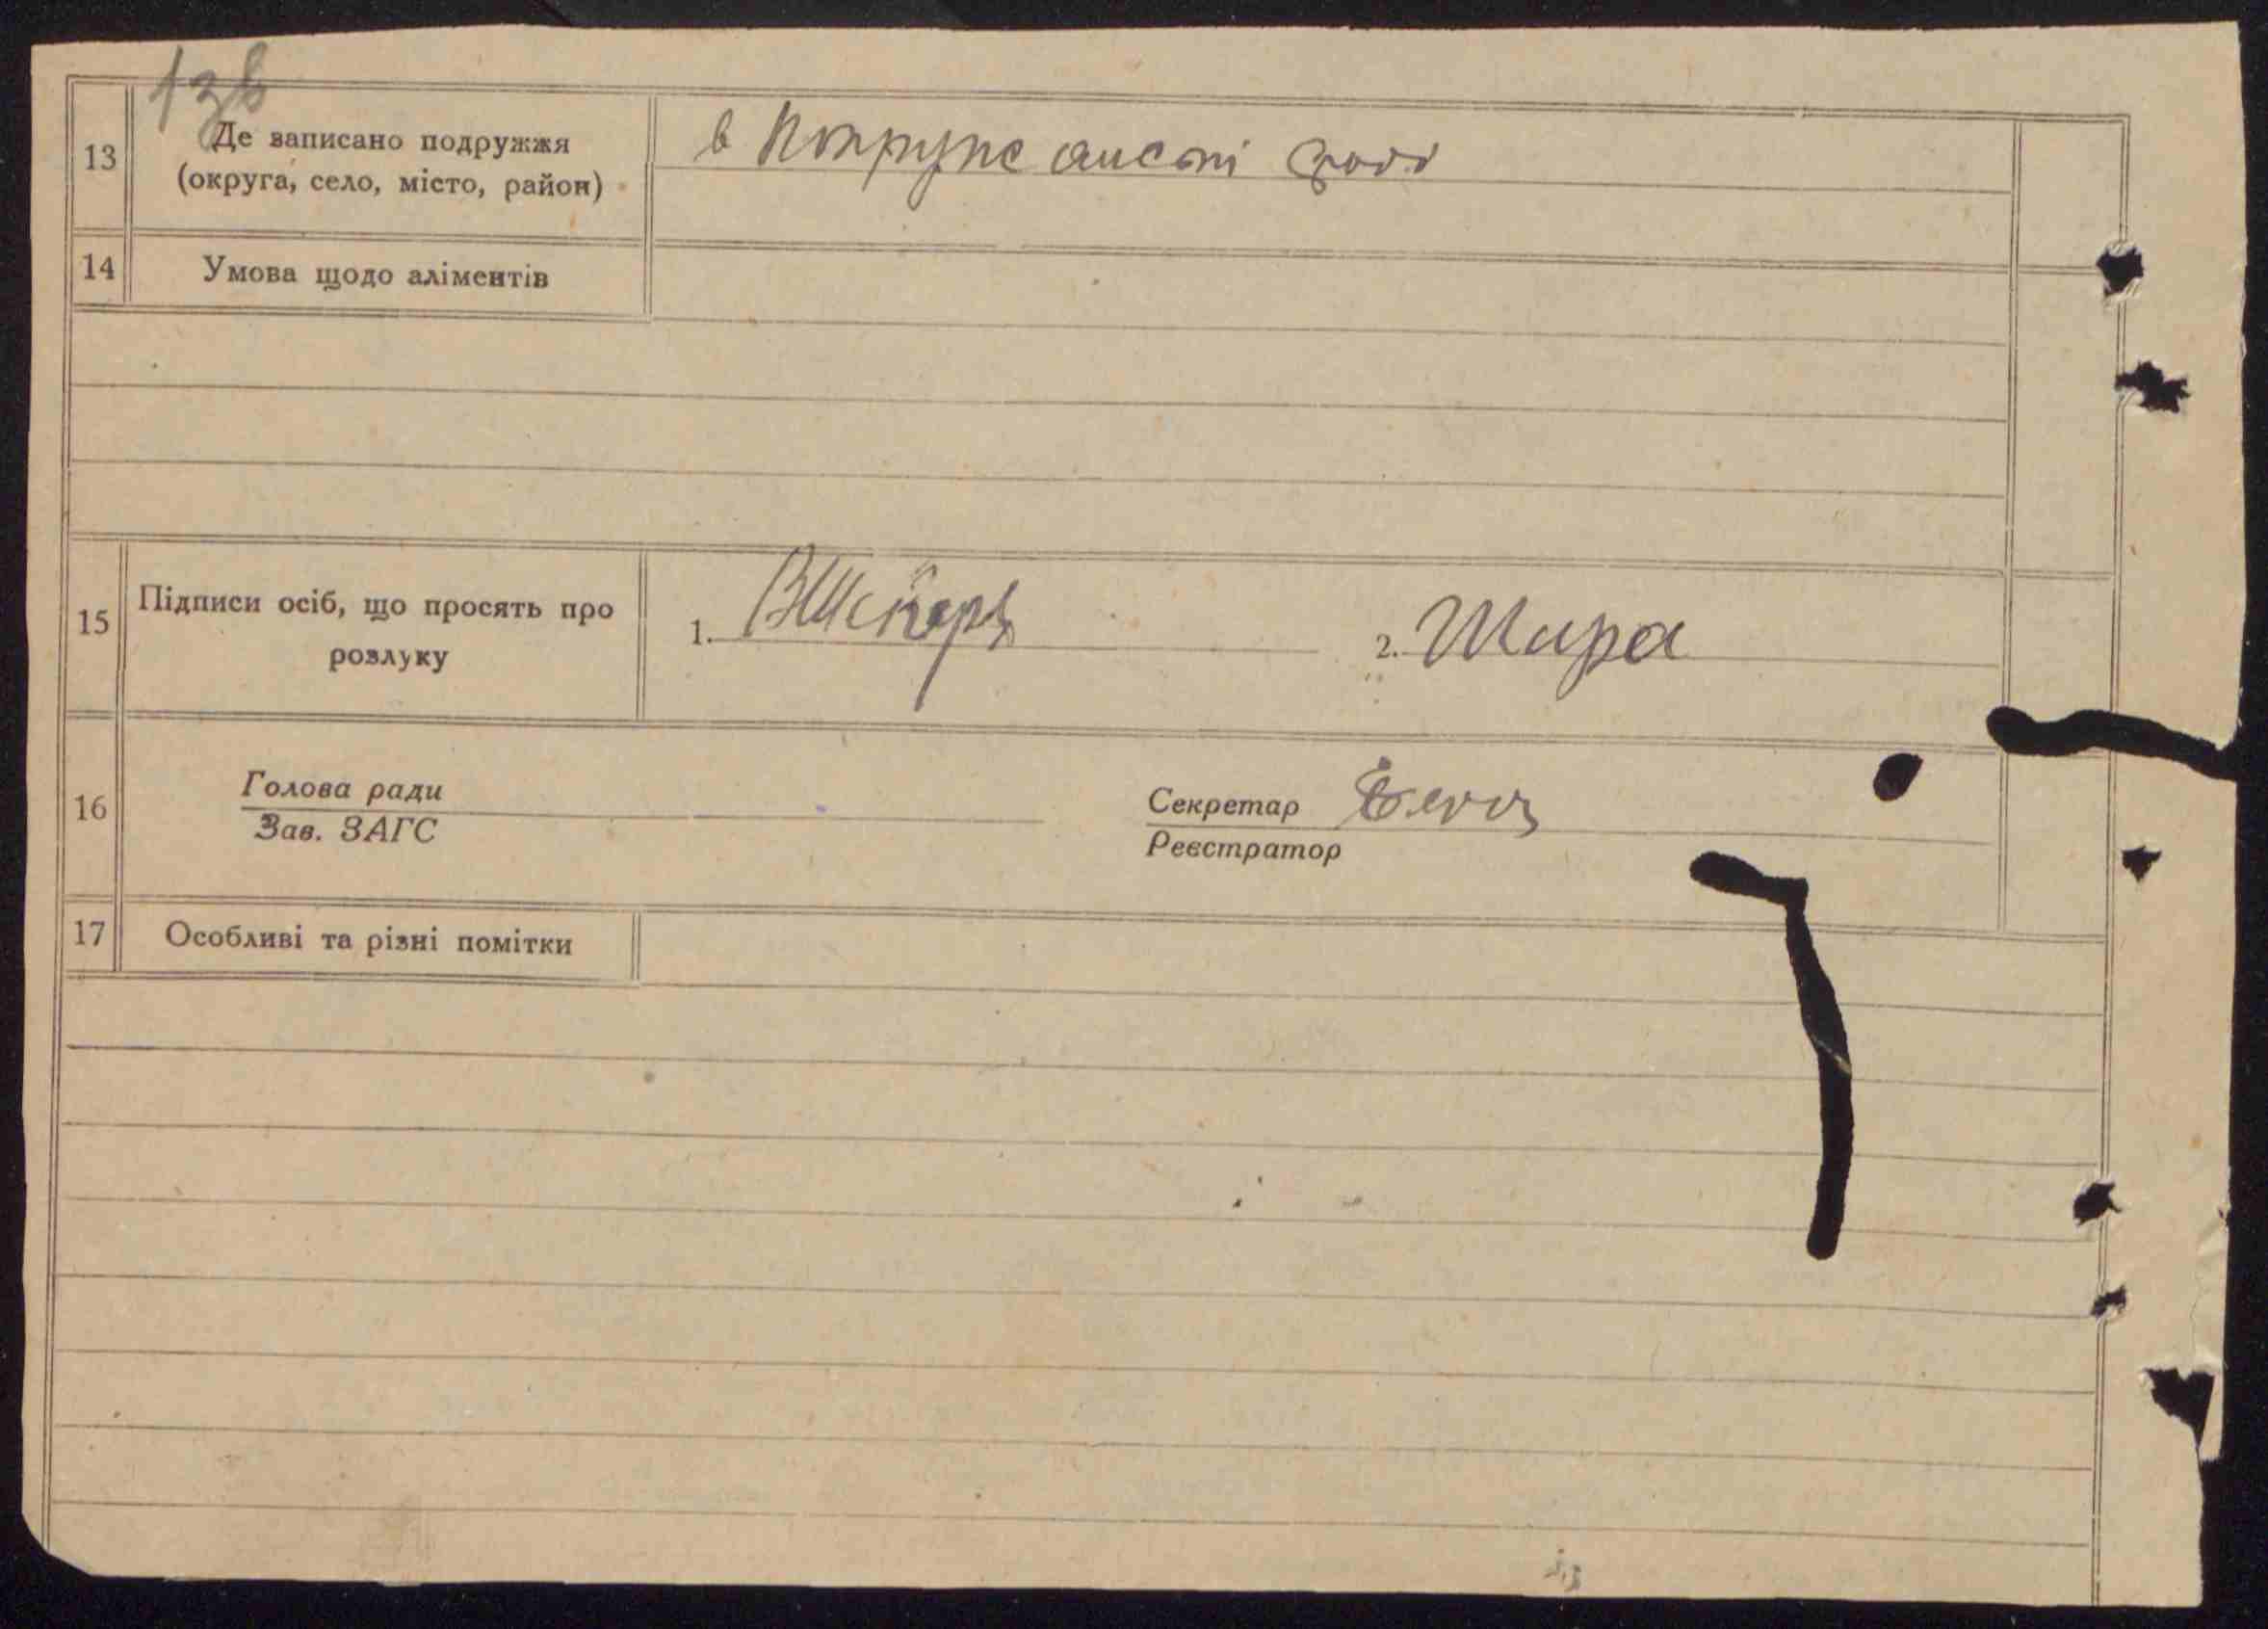 13 Де записано подружжя
(округа, село, місто, район)
в
14 Умова щодо аліментів
15 Підписи осіб, що просять про
розлуку
1. 2. Шира
16 Голова ради
Зав. ЗАГС
Секретар
Реєстратор
17 Особливі та різні помітки